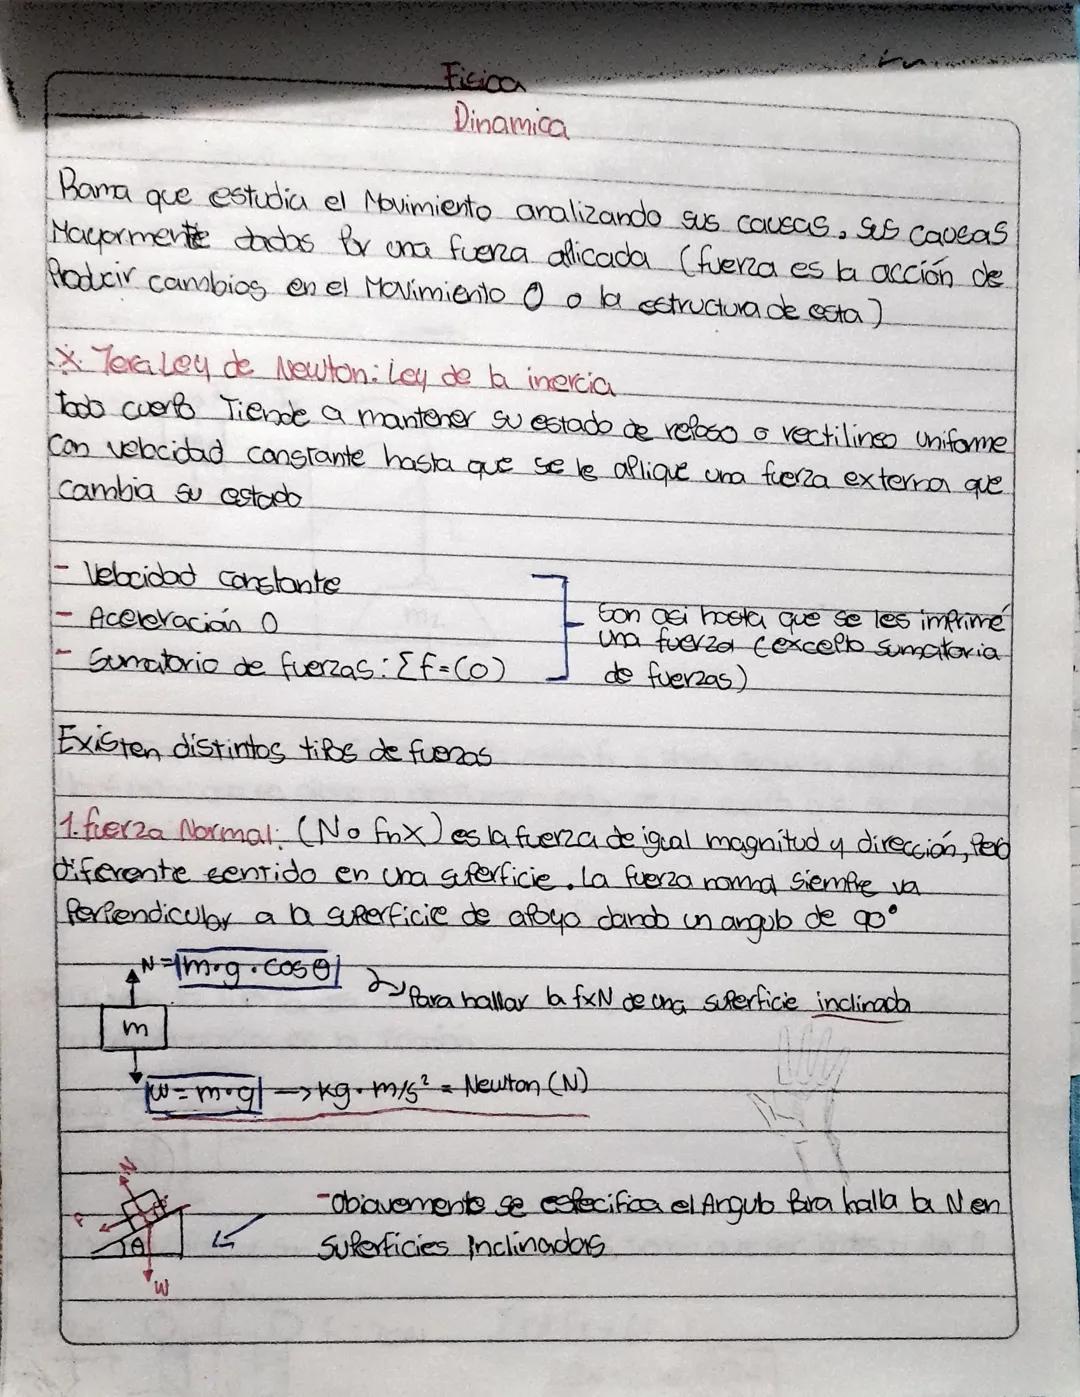 Fisica
Dinamica
Rama que estudia el Movimiento analizando sus causas, sus causas
Mayormente dadas por una fuerza aplicada (fuerza es la acción de
Producir cambios en el Movimiento O o la estructura de esta)
X. 1era Ley de Newton: Ley de la inercia
Todo cuerpo Tiende a mantener su estado de reposo o rectilineo uniforme
Con velocidad constante hasta que se le aplique una fuerza externa que
cambia su estado
- Velocidad constante
- Aceleración 0
- Sumatorio de fuerzas: Σf=(0)
Son asi hasta que se les imprime
una fuerza (excepto sumatoria
de fuerzas)
Existen distintos tipos de fuerzas
1. fuerza Normal: (N o fnx) es la fuerza de igual magnitud y dirección, pero
diferente sentido en una superficie. La fuerza normal siempre va
Perpendicular a la superficie de apoyo dando un angulo de 90°
N=|m·g·cosθ|
Para hallar la fxN de una superficie inclinada
m
|W=m·g| → kg·m/s² = Newton (N)
N
θ
W
- Obiavemente se especifica el Angulo Para halla la N en
Superficies Inclinadas